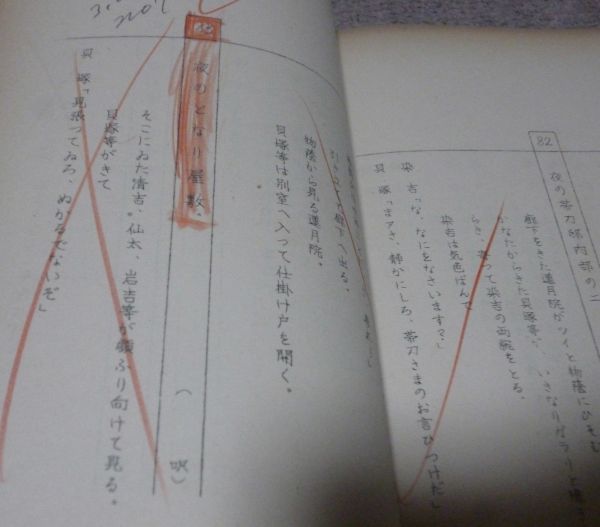 82
夜の帯刀邸内部の二
廊下をきた蓮月院がツイと物蔭にひそむ
かなたからきた貝塚等が、いきなりガラリと
らき、寄って染吉の両腕をとる。
染吉「な、なにをなさいます?」
染吉は気色ばんで
貝塚「まアさ、静かにしろ、帯刀さまのお言ひつけだ」
廊下へ出る。
物蔭から見る蓮月院。
貝塚等は別室へ入って仕掛け戸を開く。
夜のとなり屋敷、
(呎)
そこにゐた清吉、仙太、岩吉等が顔ふり向けて見る。
貝塚等がきて
貝塚「見張ってゐろ、ぬかるでないぞ」